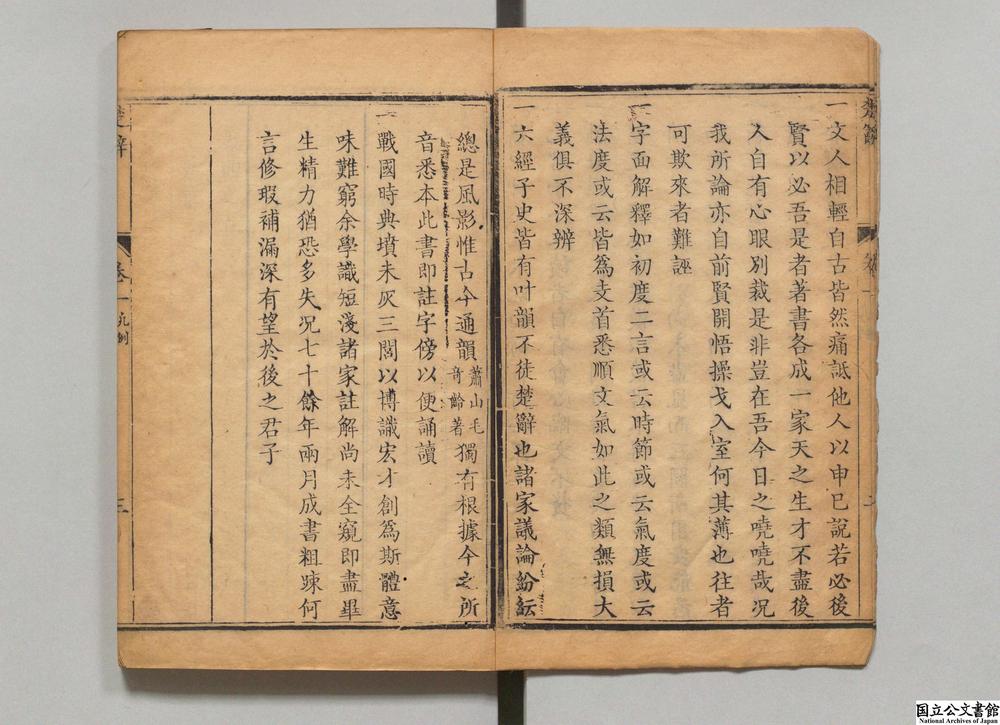 楚辭
一文人相輕自古皆然痛詆他人以申已說若必後
賢以必吾是者著書各成一家天之生才不盡後
人自有心眼別裁是非豈在吾今日之嘵嘵哉况
我所論亦自前賢開悟操戈入室何其薄也往者
可欺來者難誣
一字面解釋如初度二言或云時節或云氣度或云
法度或云皆為支首悉順文氣如此之類無損大
義俱不深辨
一六經子史皆有叶韻不徒楚辭也諸家議論紛紜
總是風影惟古今通韻蕭山毛奇齡著獨有根據今之所
音悉本此書即註字傍以便誦讀
一戰國時典墳未灰三閭以博識宏才創為斯體意
味難窮余學識短淺諸家註解尚未全窺即盡畢
生精力猶恐多失况七十餘年兩月成書粗踈何
言修瑕補漏深有望於後之君子
楚辭
卷一凡例
三
国立公文書館
National Archives of Japan